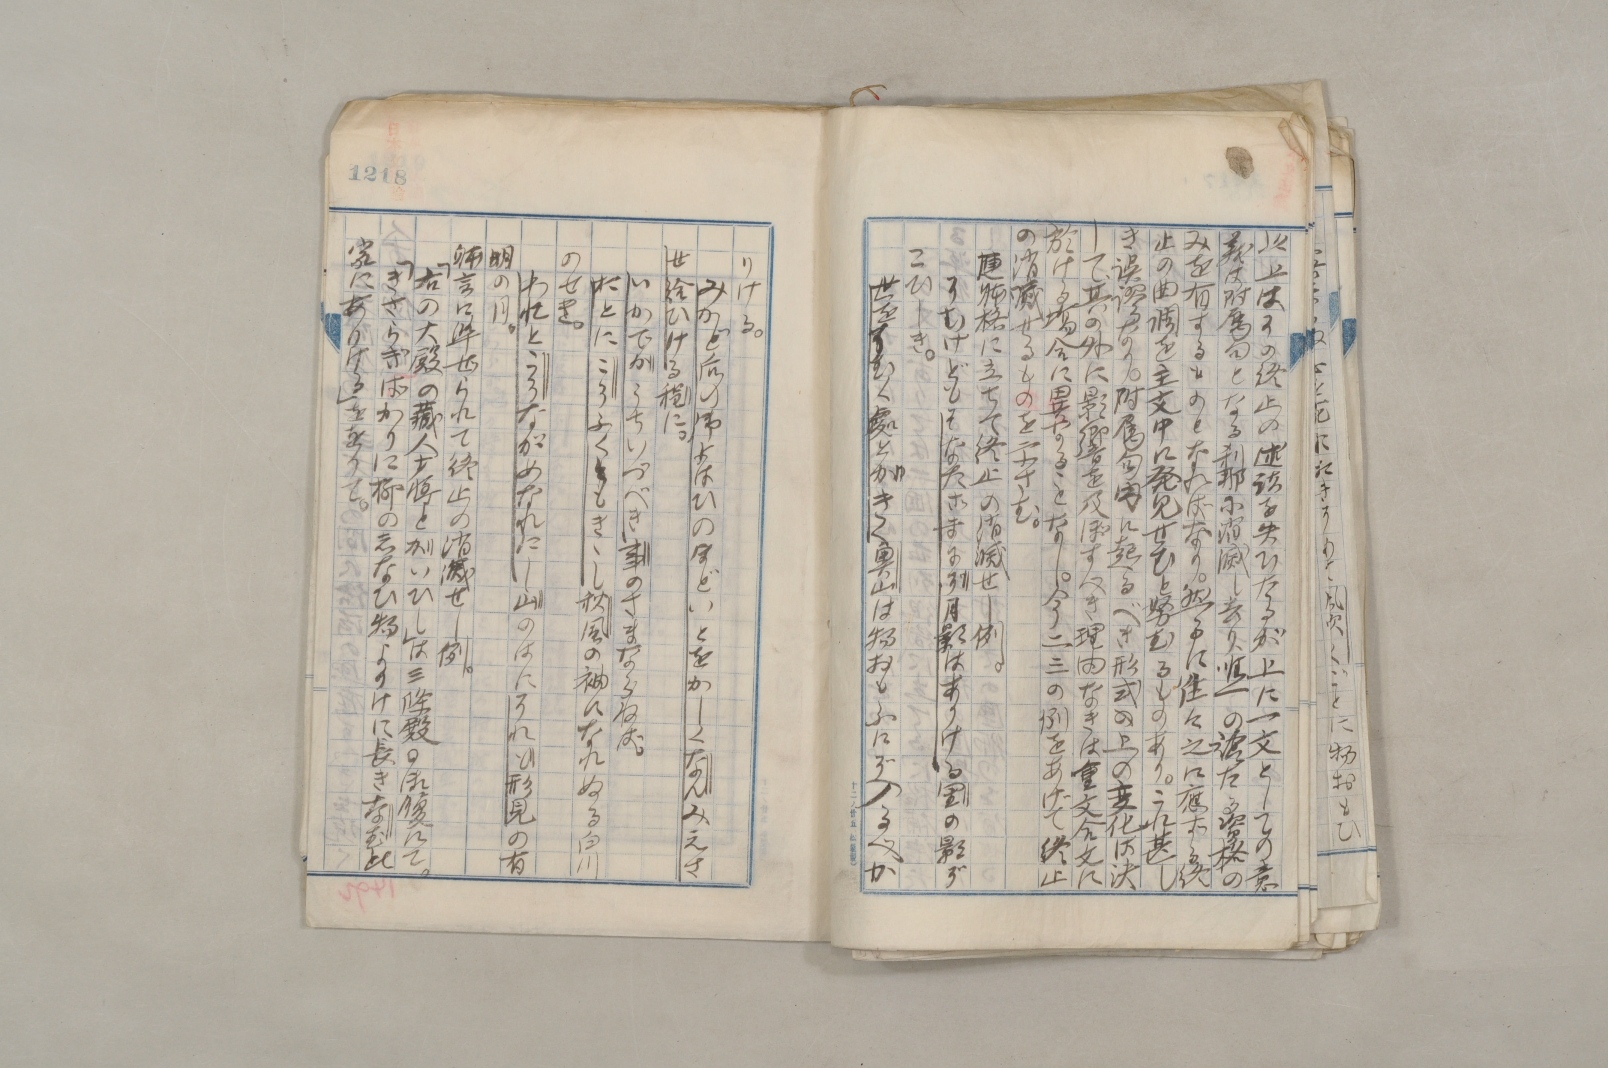 以上はその終止の述語を失ひたるが上に一文としての意
義は附属句となる刹那に消滅し去り唯一の資格の
みを有するものとなればなり。然るに往々之に應ずる終
止の曲調を主文中に発見せむと努むるものあり。これ甚し
き誤謬なり。附属句内に起るべき形式の上の変化は決
して其の外に影響を及ぼすべき理由なきは重文合文に
於ける場合に異なることなし。今二三の例をあげて終止
の消滅せるものを示さむ。
連体格に立ちて終止の消滅せし例。
そむけどもそなたにまづ月影はありける雲の影ぞ
こひしき。
世をそむく處とかきく奥山は物おもふにぞ入るべか
りける。
みかど后の御よはひのほどいとをかしくなんみえさ
せ給ひける程に。
いかでかうちいづべき事のさまならねば。
おとにこそふくともきゝし秋風の袖になれぬる白川
のせき。
われとこそながめなれにし山のはにそれも形見の有
明の月。
体言に準ぜられて終止の消滅せし例。
「右の大殿の藏人少将とかいひし」は三條殿の御腹にて。
「きさらぎばかりに柳のしなひ物よりけに長きなむ此
家にありける」ををりて。
1218